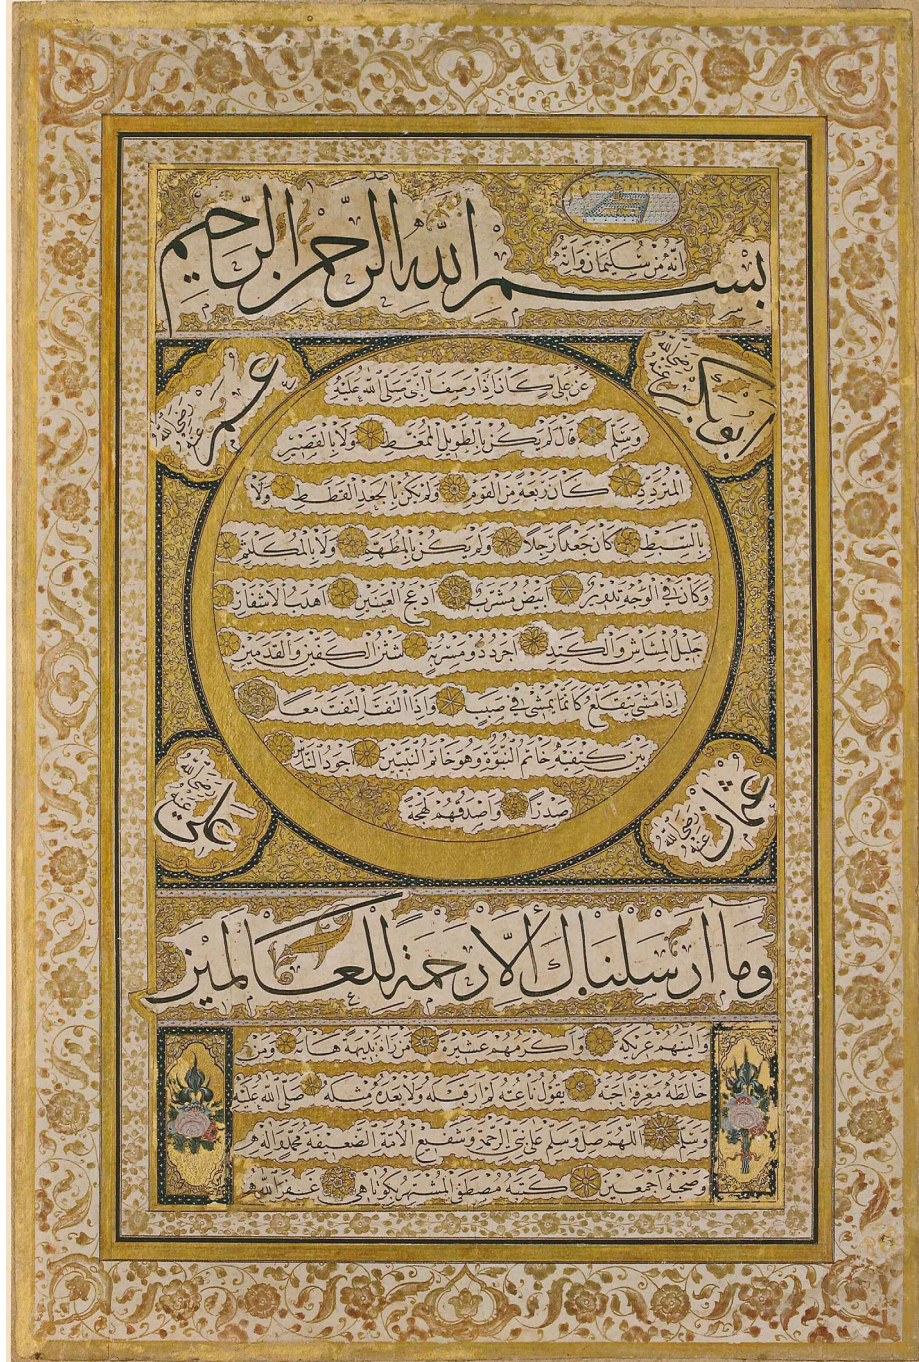 انه من سليمان وانه
بسم الله الرحمن الرحيم
ابوبكر رضي الله عنه
عمر رضي الله عنه
عن علي كان اذا وصف النبي صلى الله عليه
وسلم قال لم يكن بالطويل الممغط ولا بالقصير
المتردد كان ربعة من القوم ولم يكن بالجعد القطط ولا
بالسبط كان جعدا رجلا ولم يكن بالمطهم ولا بالمكلثم
وكان في الوجه تدوير ابيض مشرب ادعج العينين اهدب الاشفار
جليل المشاش والكتد اجرد ذو مسربة شثن الكفين والقدمين
اذا مشى يتقلع كانما يمشي في صبب واذا التفت التفت معا
بين كتفيه خاتم النبوة وهو خاتم النبيين اجود الناس
صدرا واصدقهم لهجة
عثمان رضي الله عنه
علي رضي الله عنه
وما ارسلناك الا رحمة للعالمين
والينهم عريكة واكرمهم عشيرة من رآه بديهة هابه ومن
خالطه معرفة احبه يقول ناعته لم ار قبله ولا بعده مثله صلى الله عليه
وسلم اللهم صل وسلم على نبي الرحمة وشفيع الامة محمد وآله
وصحبه اجمعين كتبه مصطفى المشتهر غفر الله